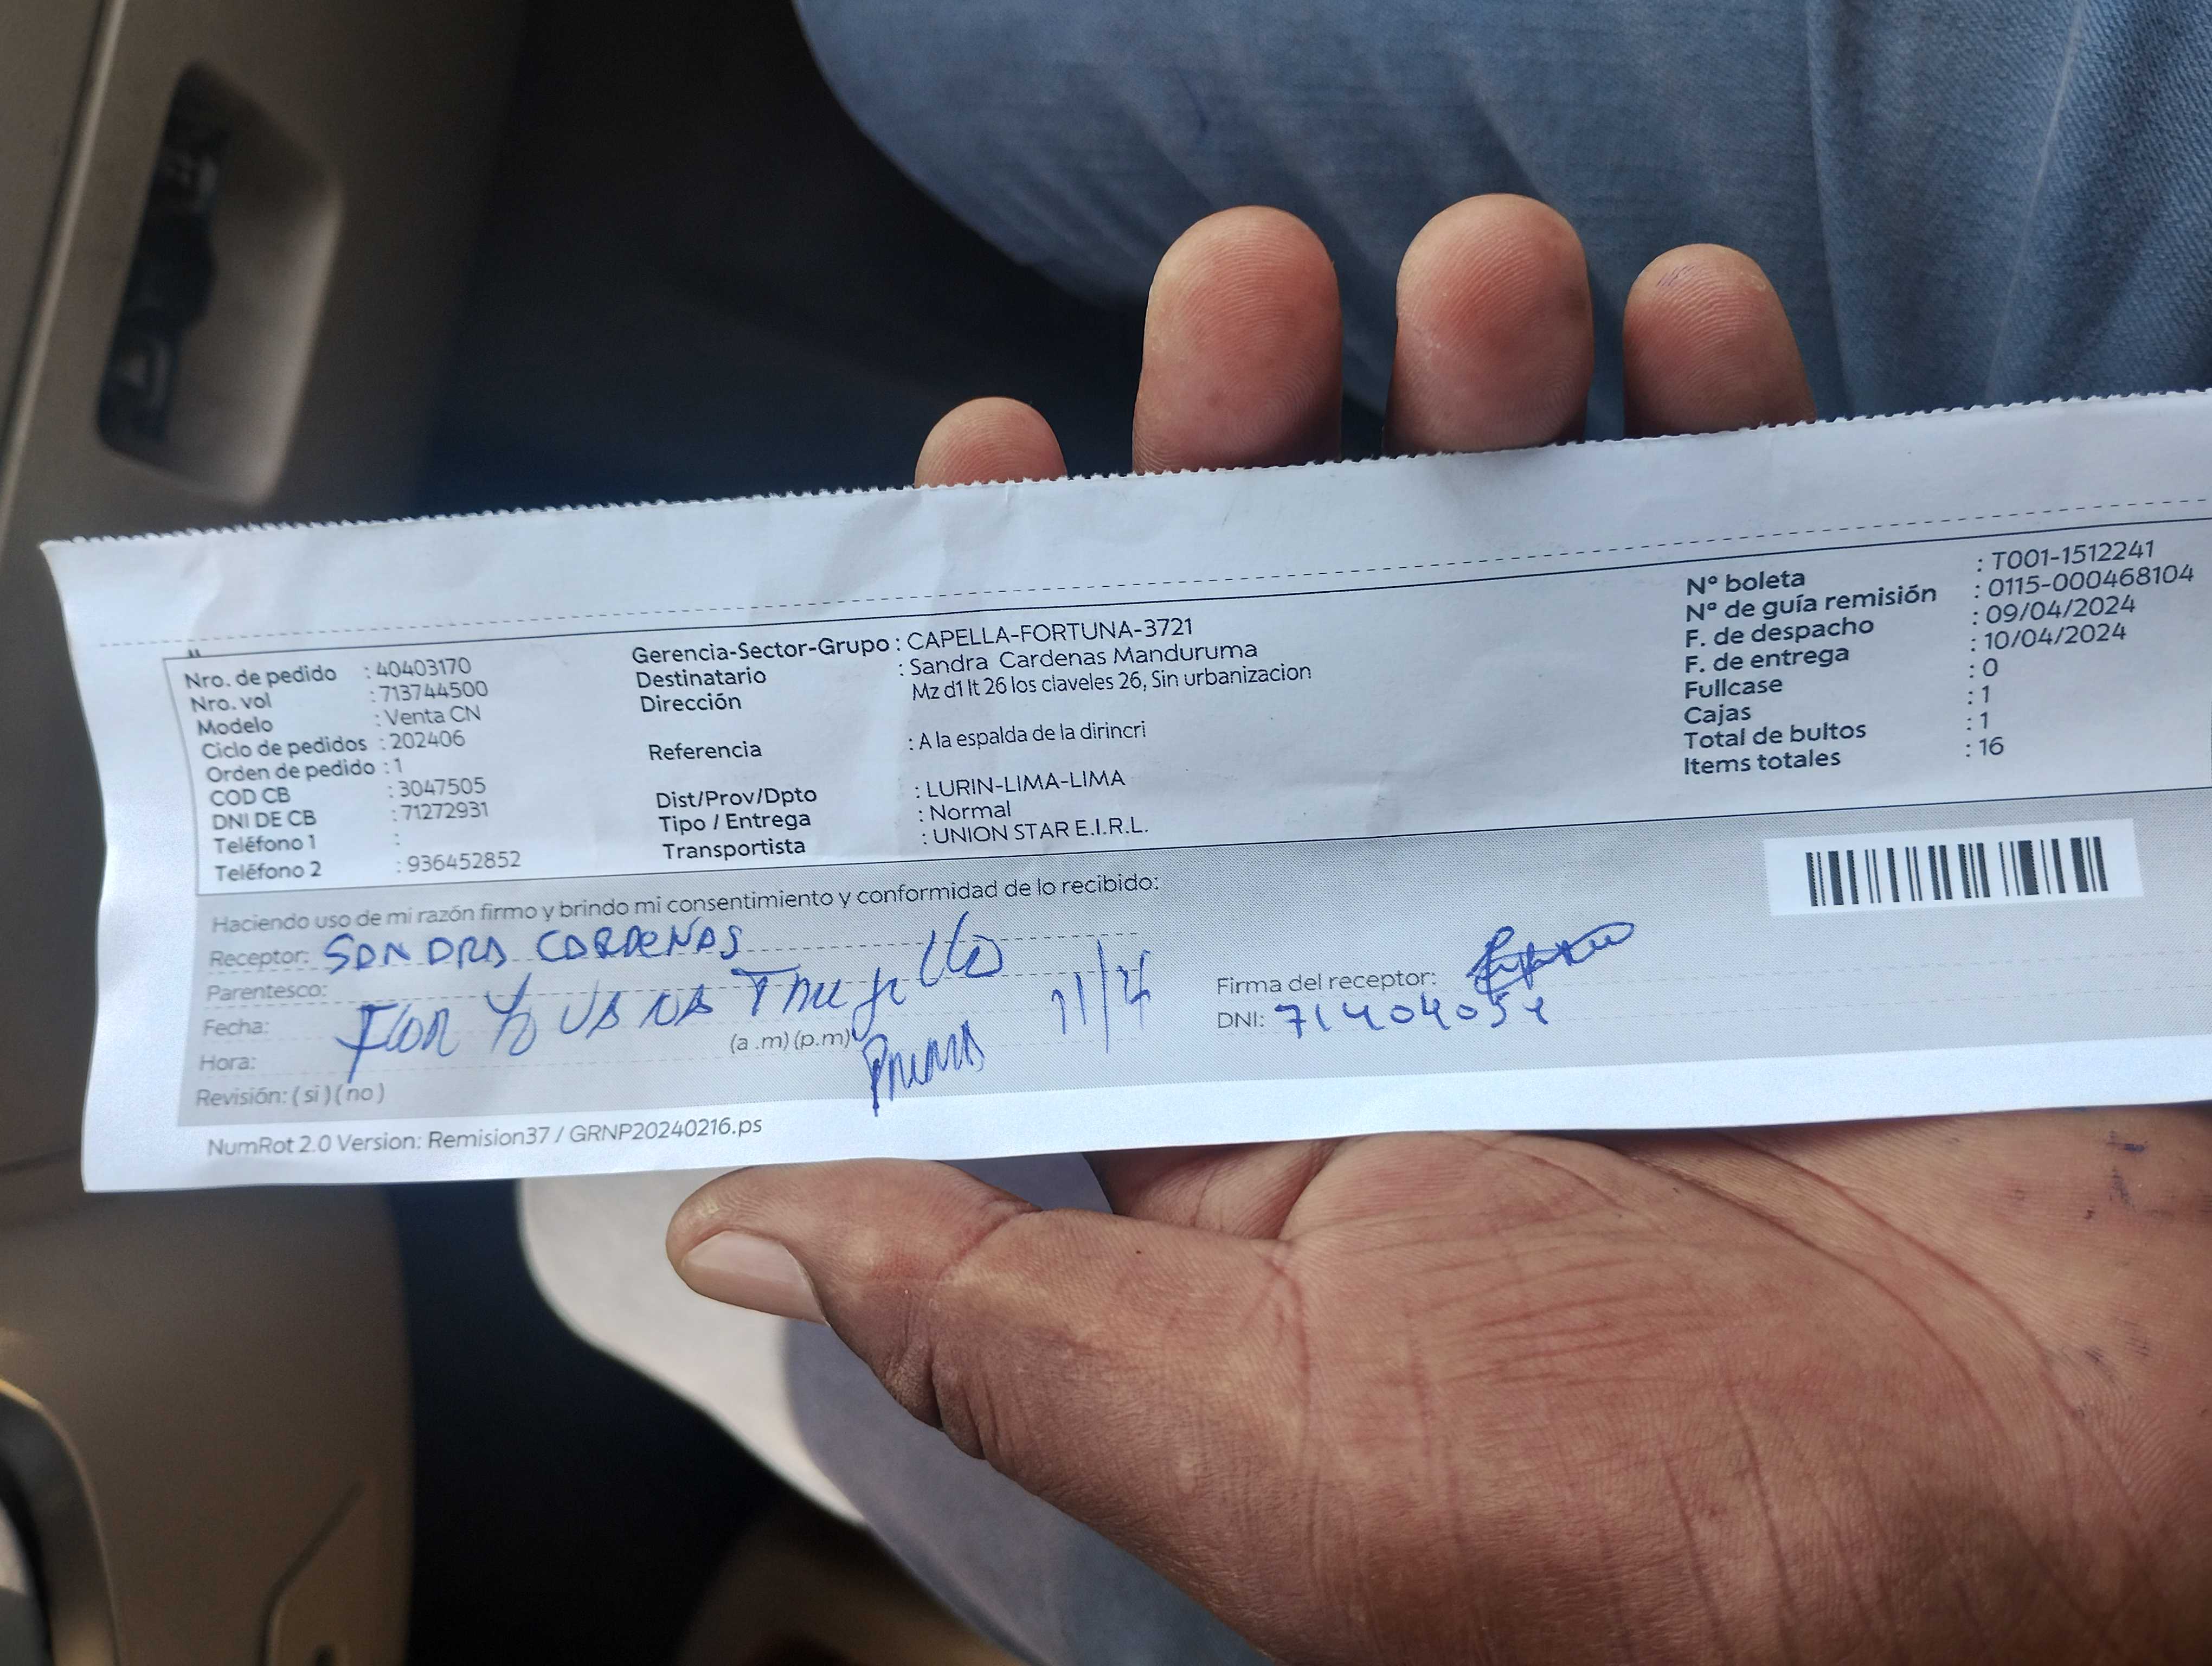 Nro. de pedido : 40403170
Nro. vol : 713744500
Modelo : Venta CN
Ciclo de pedidos : 202406
Orden de pedido : 1
COD CB : 3047505
DNI DE CB : 71272931
Teléfono 1 :
Teléfono 2 : 936452852
Gerencia-Sector-Grupo : CAPELLA-FORTUNA-3721
Destinatario : Sandra Cardenas Manduruma
Dirección Mz d1 lt 26 los claveles 26, Sin urbanizacion
Referencia : A la espalda de la dirincri
Dist/Prov/Dpto : LURIN-LIMA-LIMA
Tipo / Entrega : Normal
Transportista : UNION STAR E.I.R.L.
N° boleta : T001-1512241
N° de guía remisión : 0115-000468104
F. de despacho : 09/04/2024
F. de entrega : 10/04/2024
Fullcase : 0
Cajas : 1
Total de bultos : 1
Items totales : 16
Haciendo uso de mi razón firmo y brindo mi consentimiento y conformidad de lo recibido:
Receptor: SANDRA CARDENAS
Parentesco:
Fecha: FLOR Trujillo 11/4
Hora: (a .m) (p.m) PRIMA
Revisión: ( si ) ( no )
Firma del receptor:
DNI: 71404054
NumRot 2.0 Version: Remision37 / GRNP20240216.ps